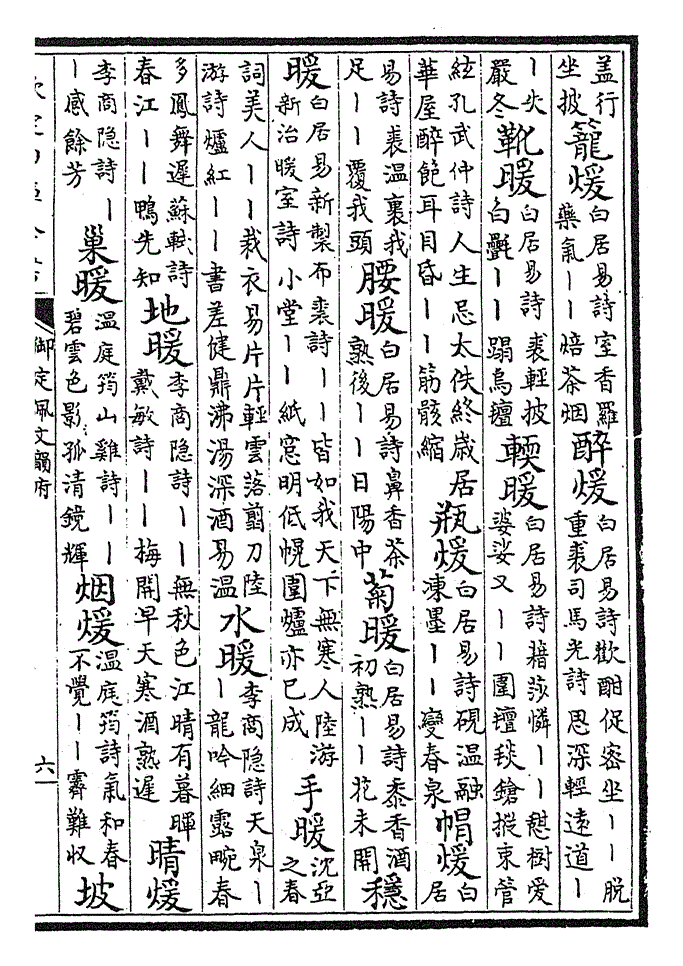 盖行坐披籠煖白居易詩室香羅藥氣一一焙茶烟醉煖白居易詩歡酣促密坐一一脱重裘司馬光詩恩深輕遠道一
一火嚴冬靴暖白居易詩裘輕披白氎一一蹋烏氊輭暖白居易詩藉莎憐一一憇樹愛婆娑又一一圍氊毯鎗摐束管
絃孔武仲詩人生忌太佚終歳居華屋醉飽耳目昏一一筋骸縮瓶煖白居易詩硯温融凍墨一一變春泉帽煖白居
易詩裘温裹我足一一覆我頭腰暖白居易詩鼻香茶熟後一一日陽中菊暖白居易詩黍香酒初熟一一花未開穩
暖白居易新製布裘詩一一皆如我天下無寒人陸游新治暖室詩小堂一一紙窓明低幌圍爐亦已成手暖沈亞之春
詞美人一一裁衣易片片輕雲落翦刀陸游詩爐紅一一書差健鼎沸湯深酒易温水暖李商隐詩天泉一一龍吟細露畹春
多鳳舞遲蘇軾詩春江一一鴨先知地暖李商隐詩一一無秋色江晴有暮暉戴敏詩一一梅開早天寒酒熟遲晴煖
李商隐詩一一感餘芳巢暖温庭筠山雞詩一一碧雲色影孤清鏡輝烟煖温庭筠詩氣和春不覺一一霽難収坡
御定佩文韻府
六